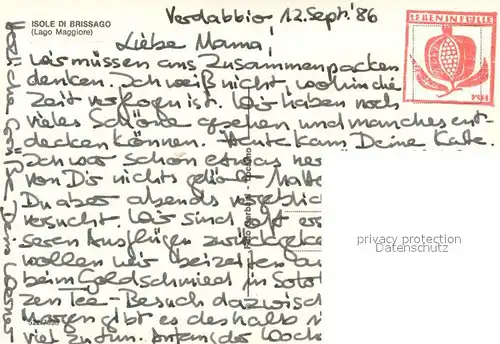 ISOLE DI BRISSAGO
(Lago Maggiore)
Verdabbio 12. Sept. '86
LEBENSFÜLLE
Liebe Mama!
Wir müssen ans Zusammenpacken
denken. Ich weiß nicht, wohin die
Zeit verflogen ist. Wir haben noch
vieles Schöne gesehen und manches ent-
decken können. Heute kam Deine Karte.
Ich war schon etwas ner
von Dir nichts gehört hatte
Du aber abends vergeblich
versucht. Wir sind oft ers
seren Ausflügen zurückgeke
wollen wir beizeiten au
beim Goldschmied in Soto
zen Tee-Besuch dazwisch
Morgen gibt es deshalb
viel zu tun. Anfang der Woche
Herzliche Grüße Deine
privacy protection
Datenschutz